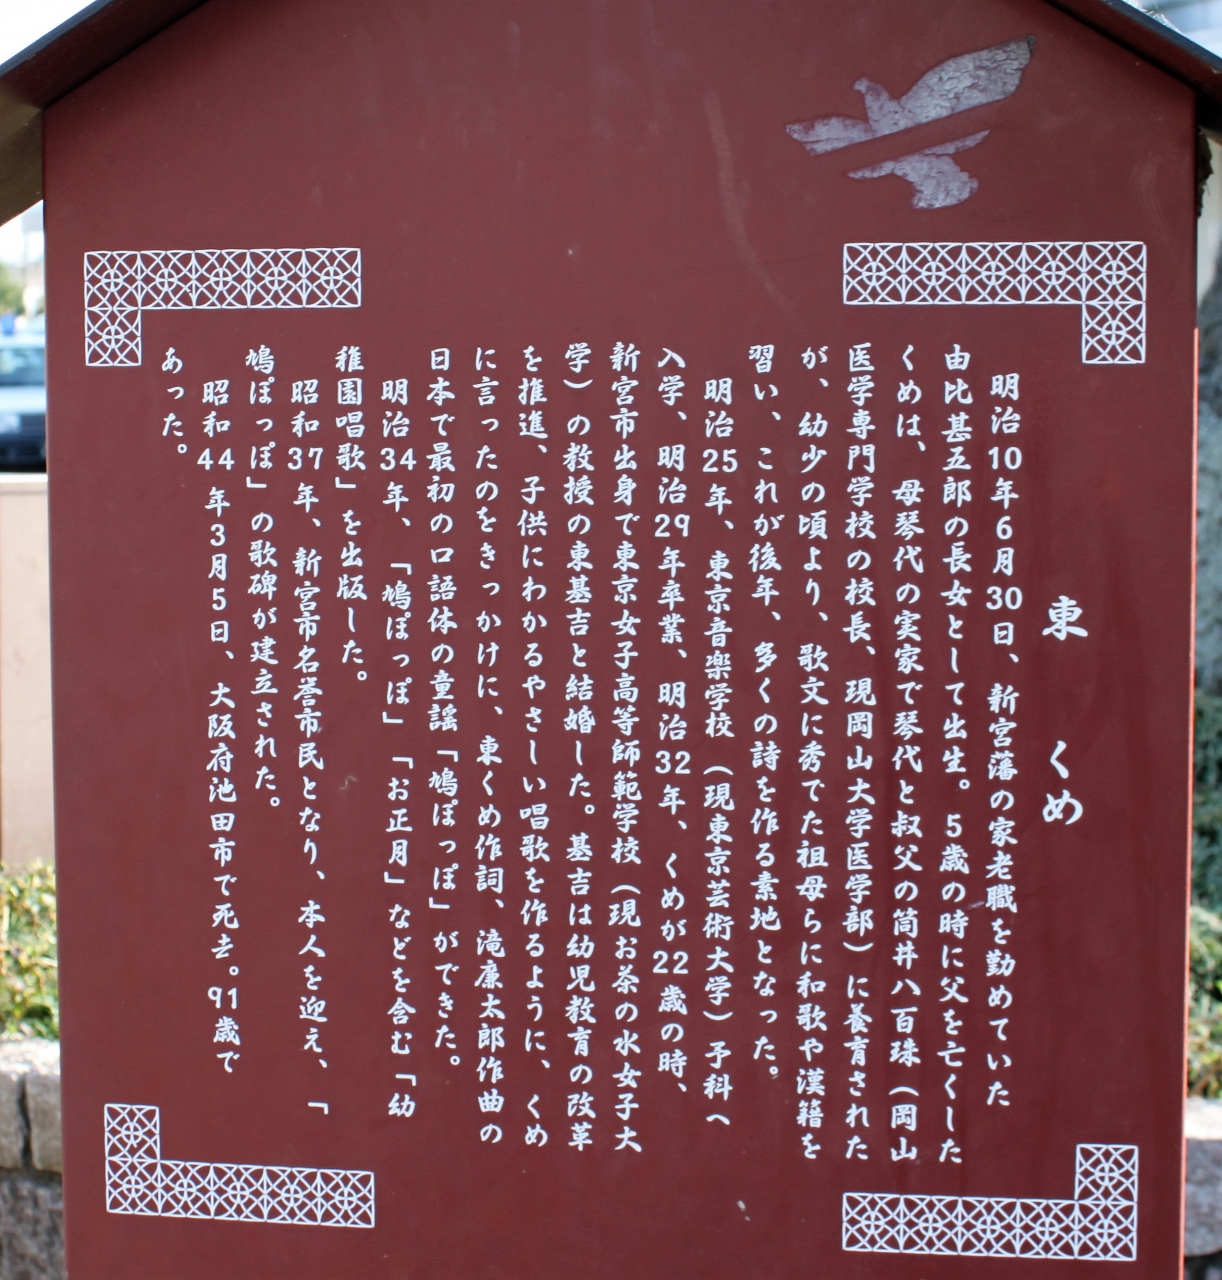 東 くめ
明治10年6月30日、新宮藩の家老職を勤めていた
由比甚五郎の長女として出生。5歳の時に父を亡くした
くめは、母琴代の実家で琴代と叔父の筒井八百珠（岡山
医学専門学校の校長、現岡山大学医学部）に養育された
が、幼少の頃より、歌文に秀でた祖母らに和歌や漢籍を
習い、これが後年、多くの詩を作る素地となった。
明治25年、東京音楽学校（現東京芸術大学）予科へ
入学、明治29年卒業、明治32年、くめが22歳の時、
新宮市出身で東京女子高等師範学校（現お茶の水女子大
学）の教授の東基吉と結婚した。基吉は幼児教育の改革
を推進、子供にわかるやさしい唱歌を作るように、くめ
に言ったのをきっかけに、東くめ作詞、滝廉太郎作曲の
日本で最初の口語体の童謡「鳩ぽっぽ」ができた。
明治34年、「鳩ぽっぽ」「お正月」などを含む「幼
稚園唱歌」を出版した。
昭和37年、新宮市名誉市民となり、本人を迎え、「
鳩ぽっぽ」の歌碑が建立された。
昭和44年3月5日、大阪府池田市で死去。91歳で
あった。